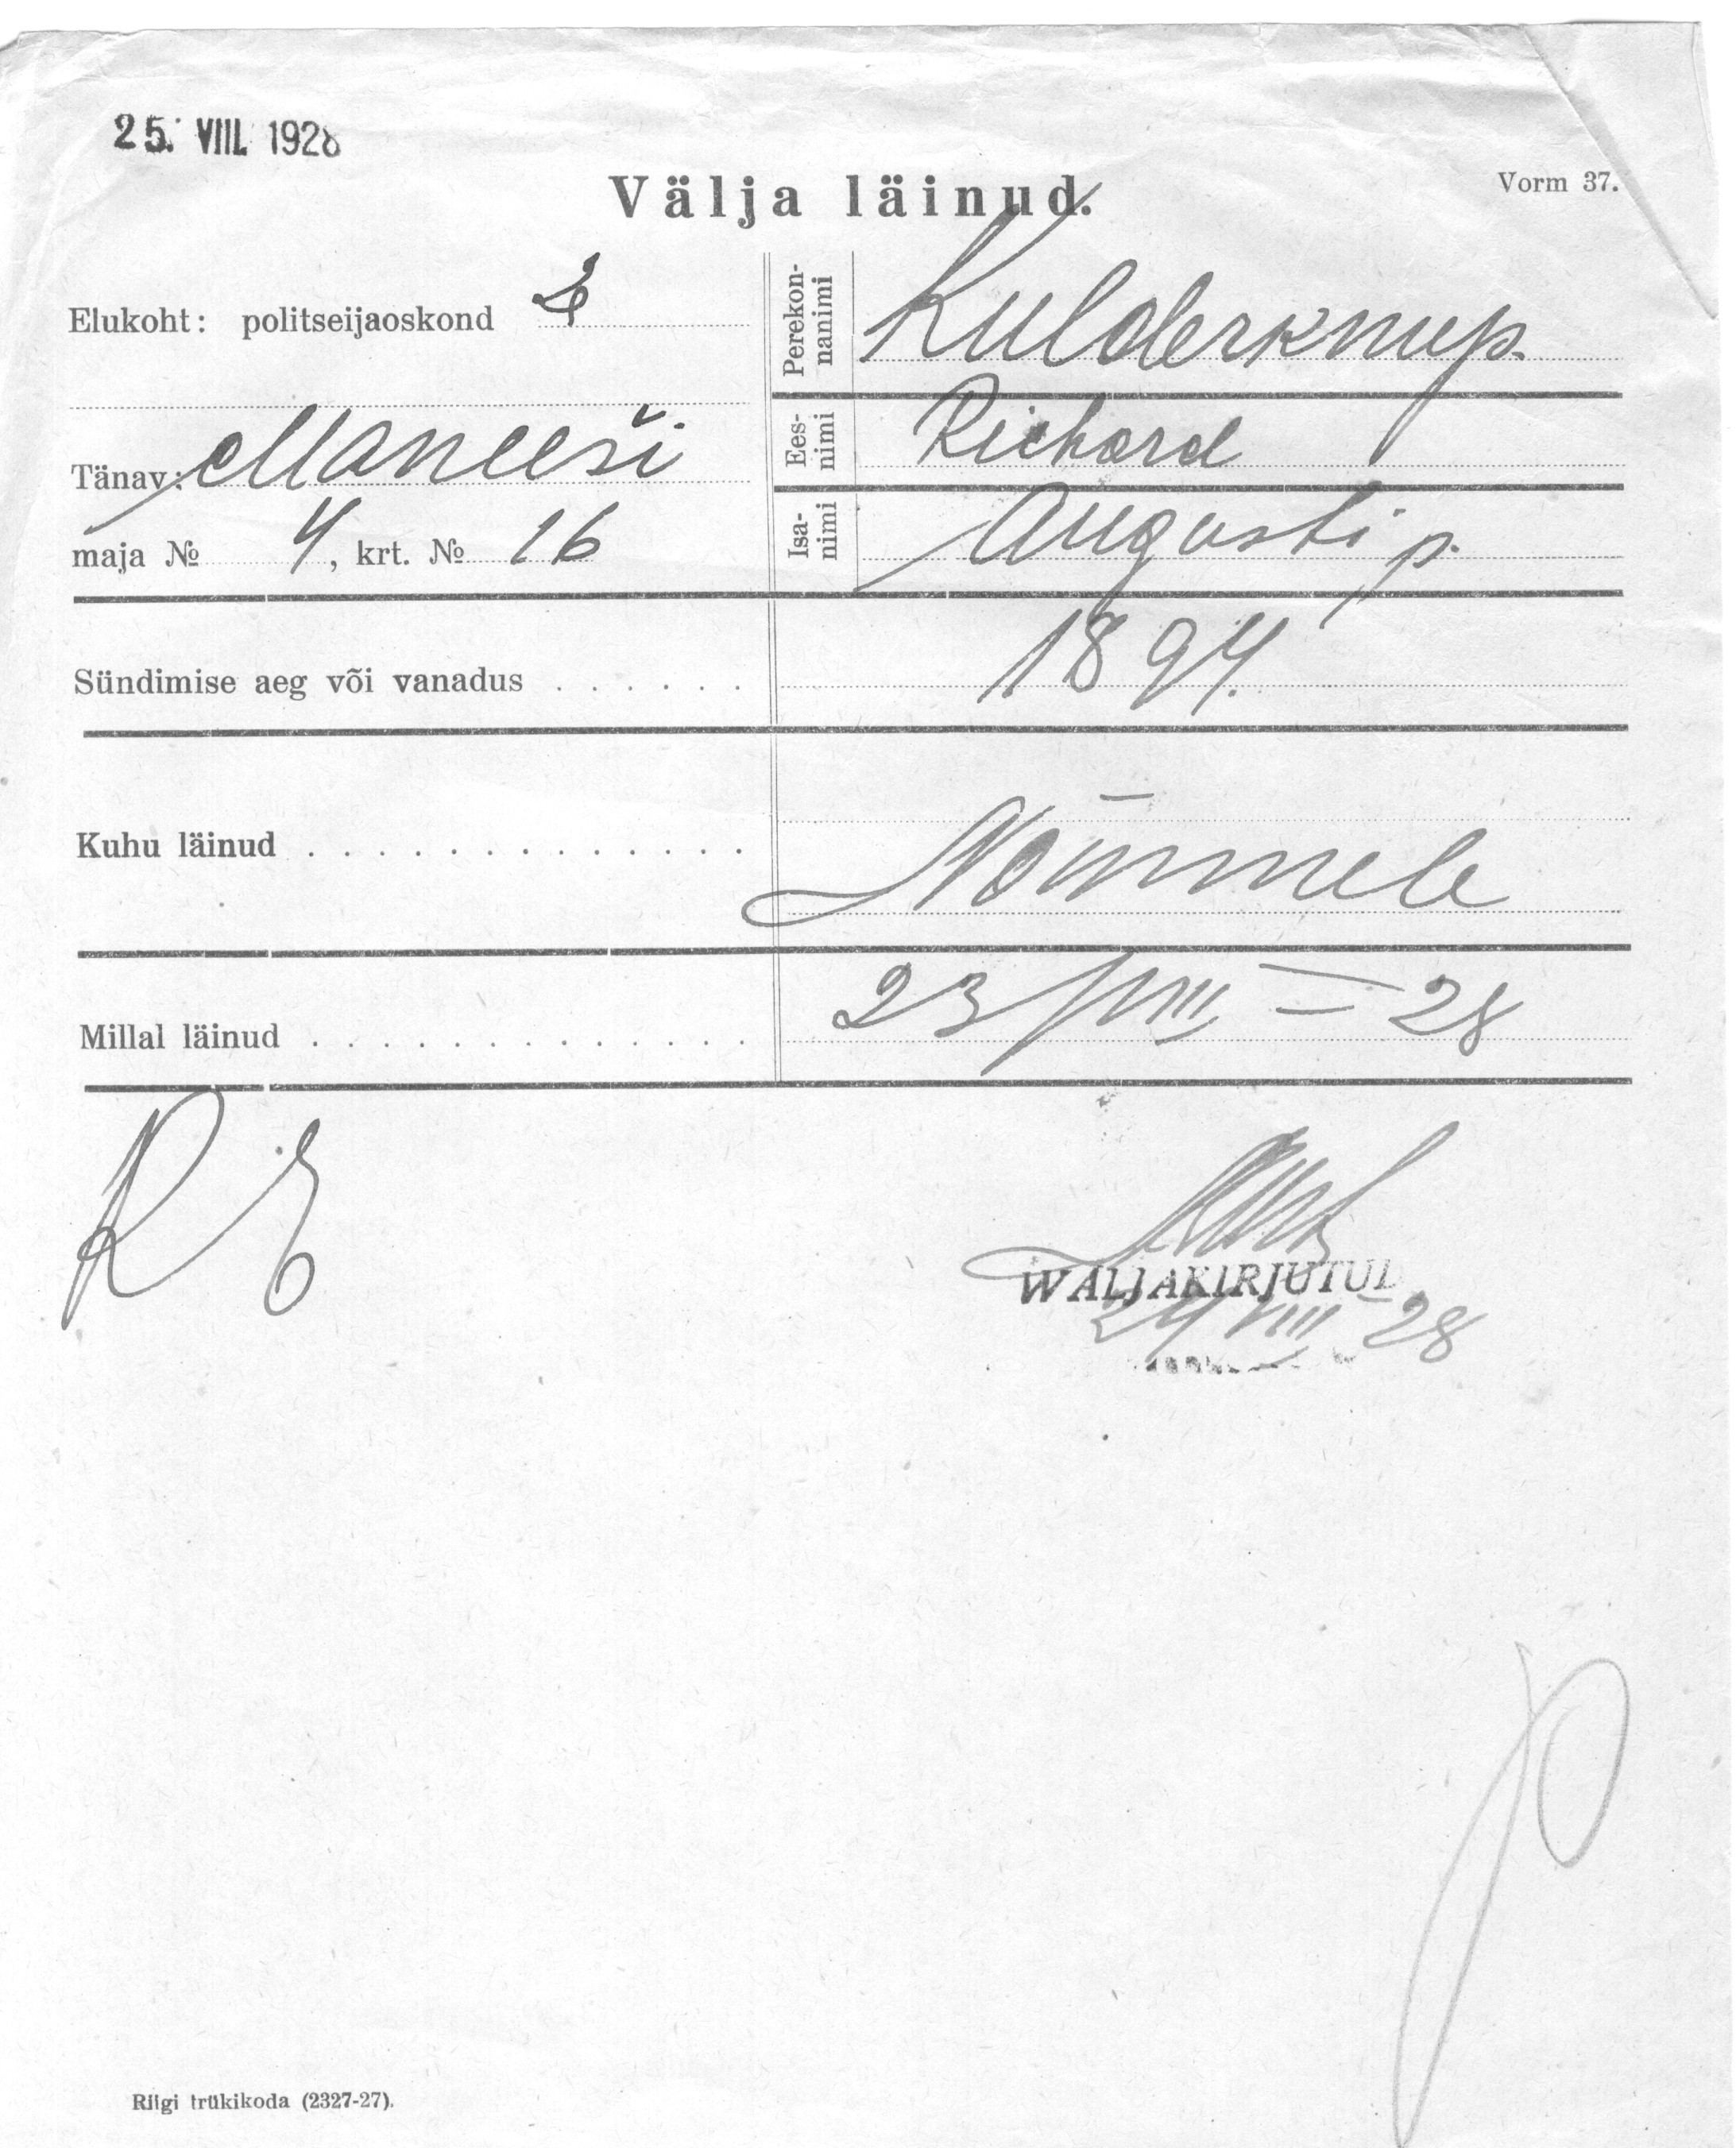 25. VIII. 1928
Vorm 37.
Välja läinud.
Elukoht: politseijaoskond
Perekon-
nanimi Kulderknup.
Tänav: Maneeši
Ees-
nimi Richard
maja № 4, krt. № 16
Isa-
nimi Augusti p.
Sündimise aeg või vanadus . . . . . . 1894.
Kuhu läinud . . . . . . . . . . . . . Nõmmele
Millal läinud . . . . . . . . . . . . . 23/VIII – 28
WALJAKIRJUTUD
24 VIII 28
Riigi trükikoda (2327-27).